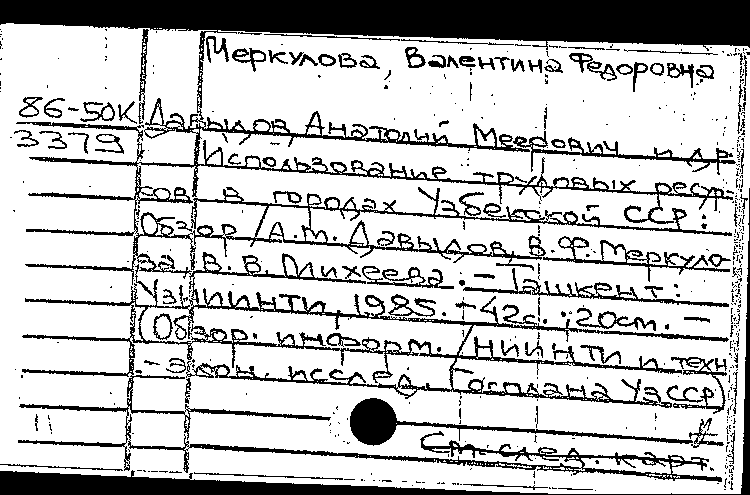 Меркулова, Валентина Федоровна
86-50К Давыдов, Анатолий Меерович и др.
3379 Использование трудовых ресур-
сов в городах Узбекской ССР:
Обзор / А.М. Давыдов, В.Ф. Меркуло-
ва, В.В. Михеева. - Ташкент:
УзНИИНТИ, 1985. - 42с.; 20см. -
(Обзор. информ. / НИИНТИ и техн
.-экон. исслед. Госплана УзССР)
См. след. карт.